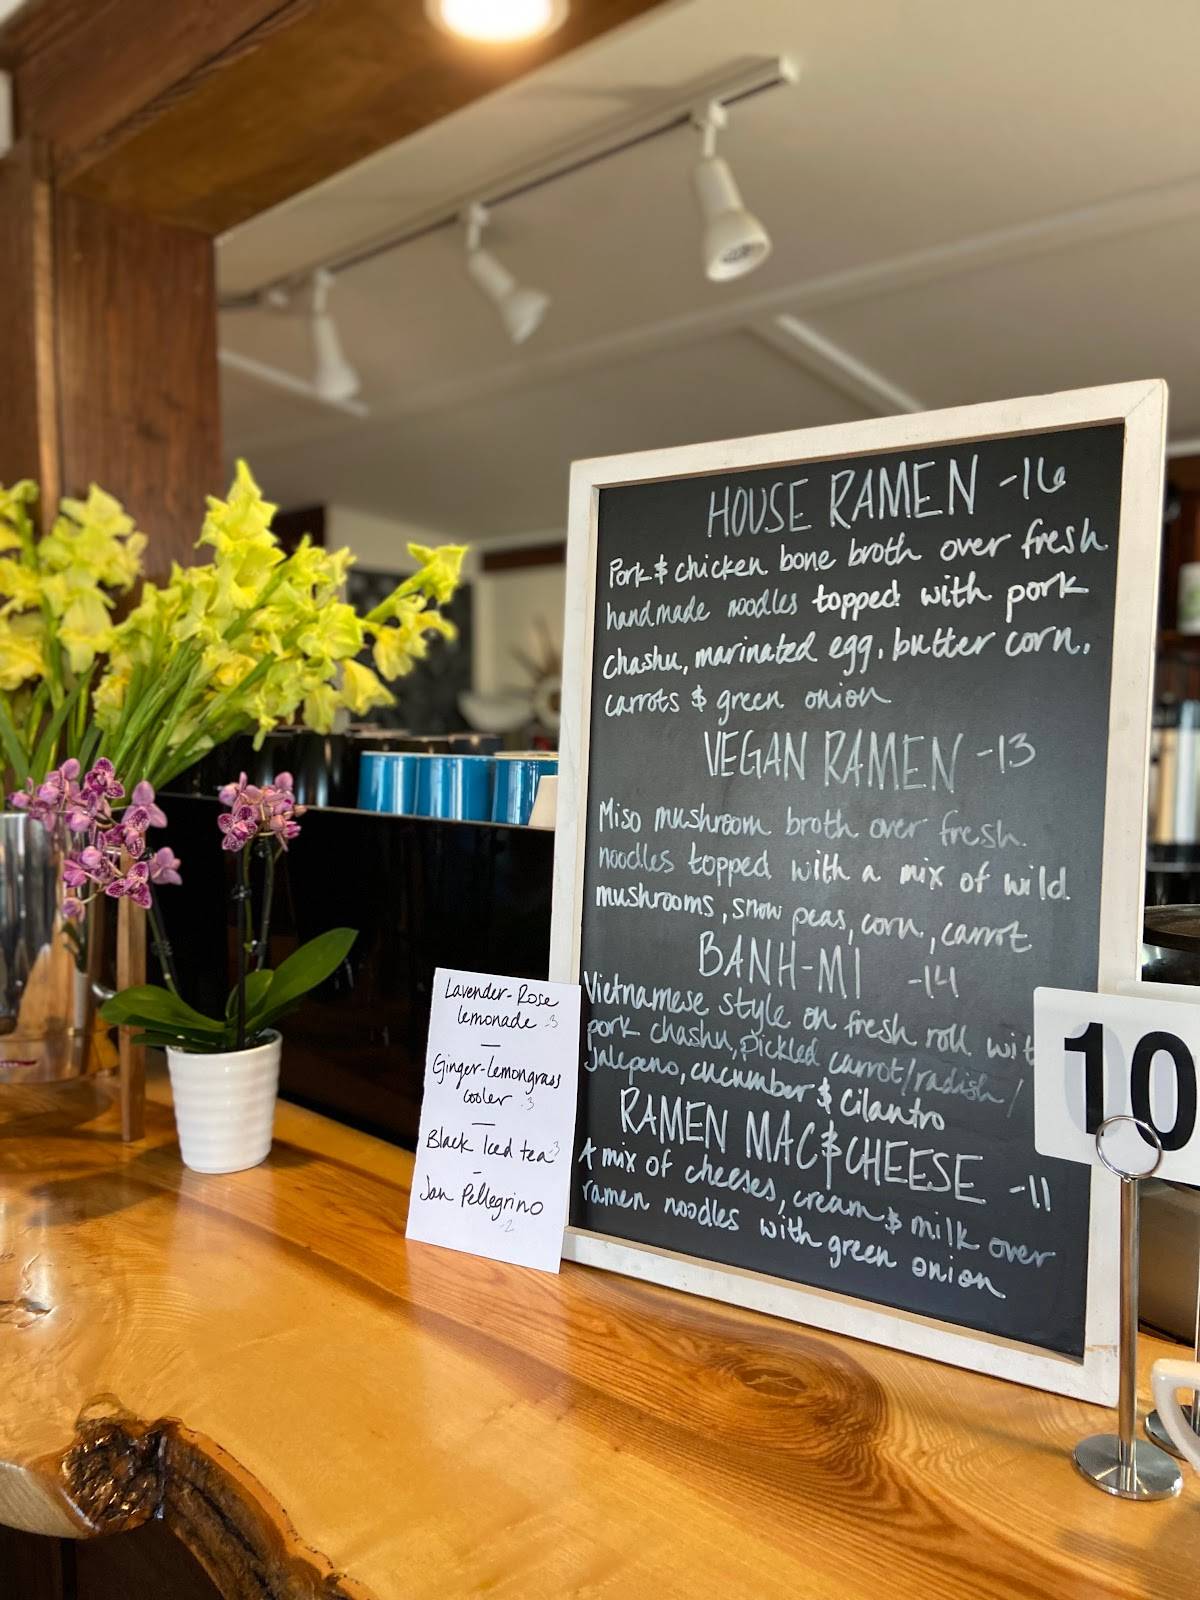 HOUSE RAMEN -16
Pork & chicken bone broth over fresh
handmade noodles topped with pork
chashu, marinated egg, butter corn,
carrots & green onion
VEGAN RAMEN -13
Miso mushroom broth over fresh
noodles topped with a mix of wild
mushrooms, snow peas, corn, carrot
BANH-MI -14
Vietnamese style on fresh roll wit
pork chashu, pickled carrot/radish/
jalepeno, cucumber & cilantro
RAMEN MAC & CHEESE -11
A mix of cheeses, cream & milk over
ramen noodles with green onion
Lavender-Rose
lemonade -3
Ginger-lemongrass
cooler -3
Black Iced tea -3
San Pellegrino
-2
10